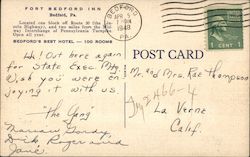 FORT BEDFORD INN
Bedford, Pa.
Located one block off Route 30 (Lincoln Highway), and two miles from the Midway Interchange of Pennsylvania Turnpike.
Open all year.
BEDFORD'S BEST HOTEL — 100 ROOMS
BEDFORD
APR 5
1948
PA.
1¢ 1 CENT 1¢
POST CARD
Hi! Out here again
for State Exec. Mtg.
Wish you were enjoying it with us.
"The Gang"
Dick, Roger and
Jane
Mr. and Mrs. Rae Thompson
La Verne
Calif.